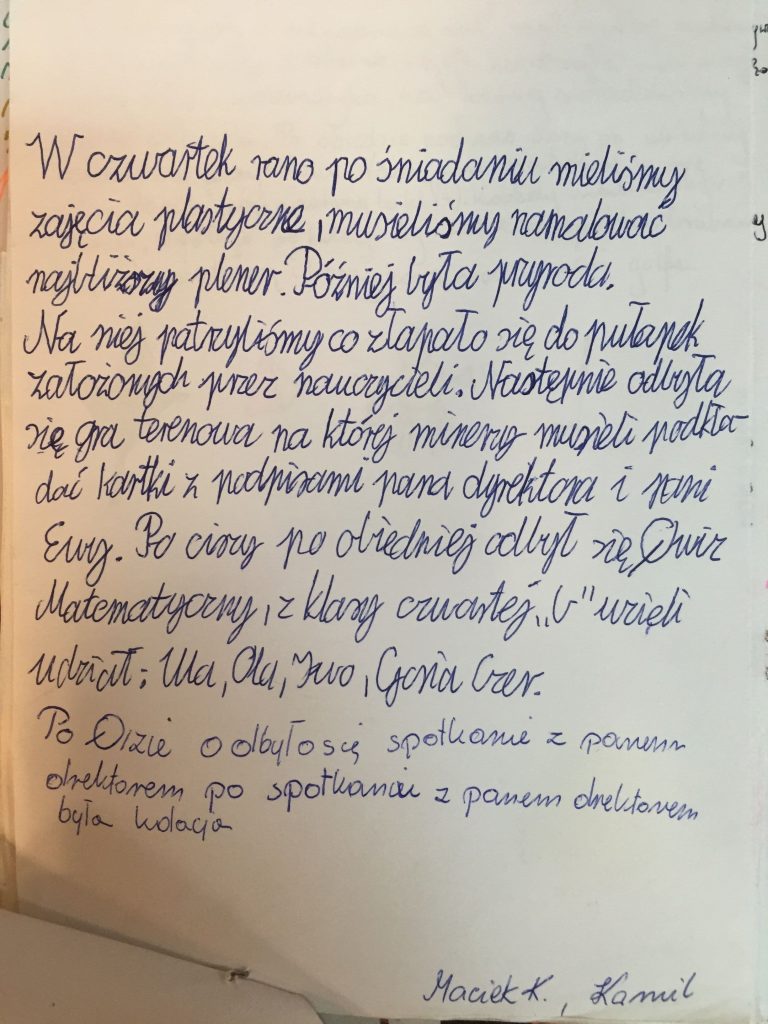 W czwartek rano po śniadaniu mieliśmy
zajęcia plastyczne, musieliśmy namalować
najbliższy plener. Później była przyroda.
Na niej patrzyliśmy co złapało się do pułapek
założonych przez nauczycieli. Następnie odbyła
się gra terenowa na której minerzy musieli podkła-
dać kartki z podpisami pana dyrektora i pani
Ewy. Po ciszy po obiedniej odbył się Quiz
Matematyczny, z klasy czwartej „b" wzięli
udział: Ula, Ola, Iwo, Gosia Czer.
Po odbyło się spotkanie z panem
drektorem po spotkaniu z panem drektorem
była kolacja
Maciek K., Kamil